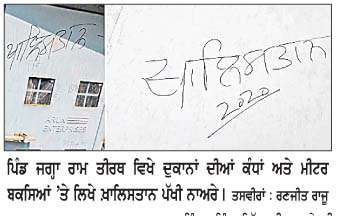 ਖਾਲਿਸਤਾਨ
ARUN
ENTERPRISES
ਖਾਲਿਸਤਾਨ
2020
ਪਿੰਡ ਜਗ੍ਹਾ ਰਾਮ ਤੀਰਥ ਵਿਖੇ ਦੁਕਾਨਾਂ ਦੀਆਂ ਕੰਧਾਂ ਅਤੇ ਮੀਟਰ
ਬਕਸਿਆਂ 'ਤੇ ਲਿਖੇ ਖ਼ਾਲਿਸਤਾਨ ਪੱਖੀ ਨਾਅਰੇ। ਤਸਵੀਰਾਂ : ਰਣਜੀਤ ਰਾਜੂ